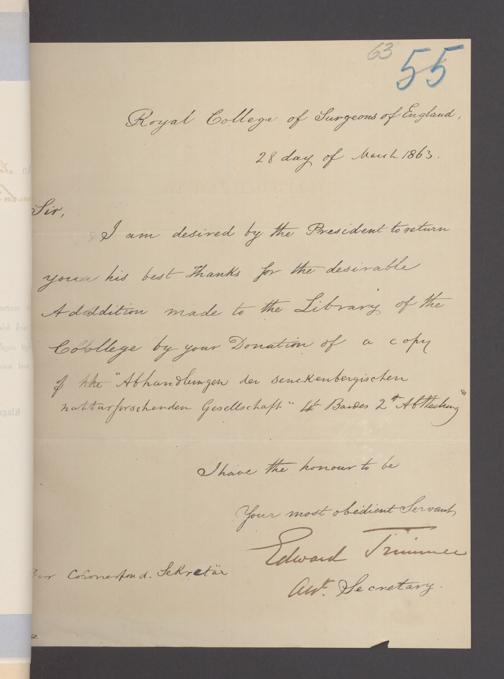 63
55
Royal College of Surgeons of England,
28 day of March 1863.
Sir,
I am desired by the President to return
you his best thanks for the desirable
Adddition made to the Library of the
Cobllege by your Donation of a copy
of the "Abhandlungen der senckenbergischen
natturforschenden Gesellschaft" 4t Bandes 2t Abtheilung"
I have the honour to be
Your most obedient Servant,
Edward Trimmer
Secretary.
Coronespond. Sekretär